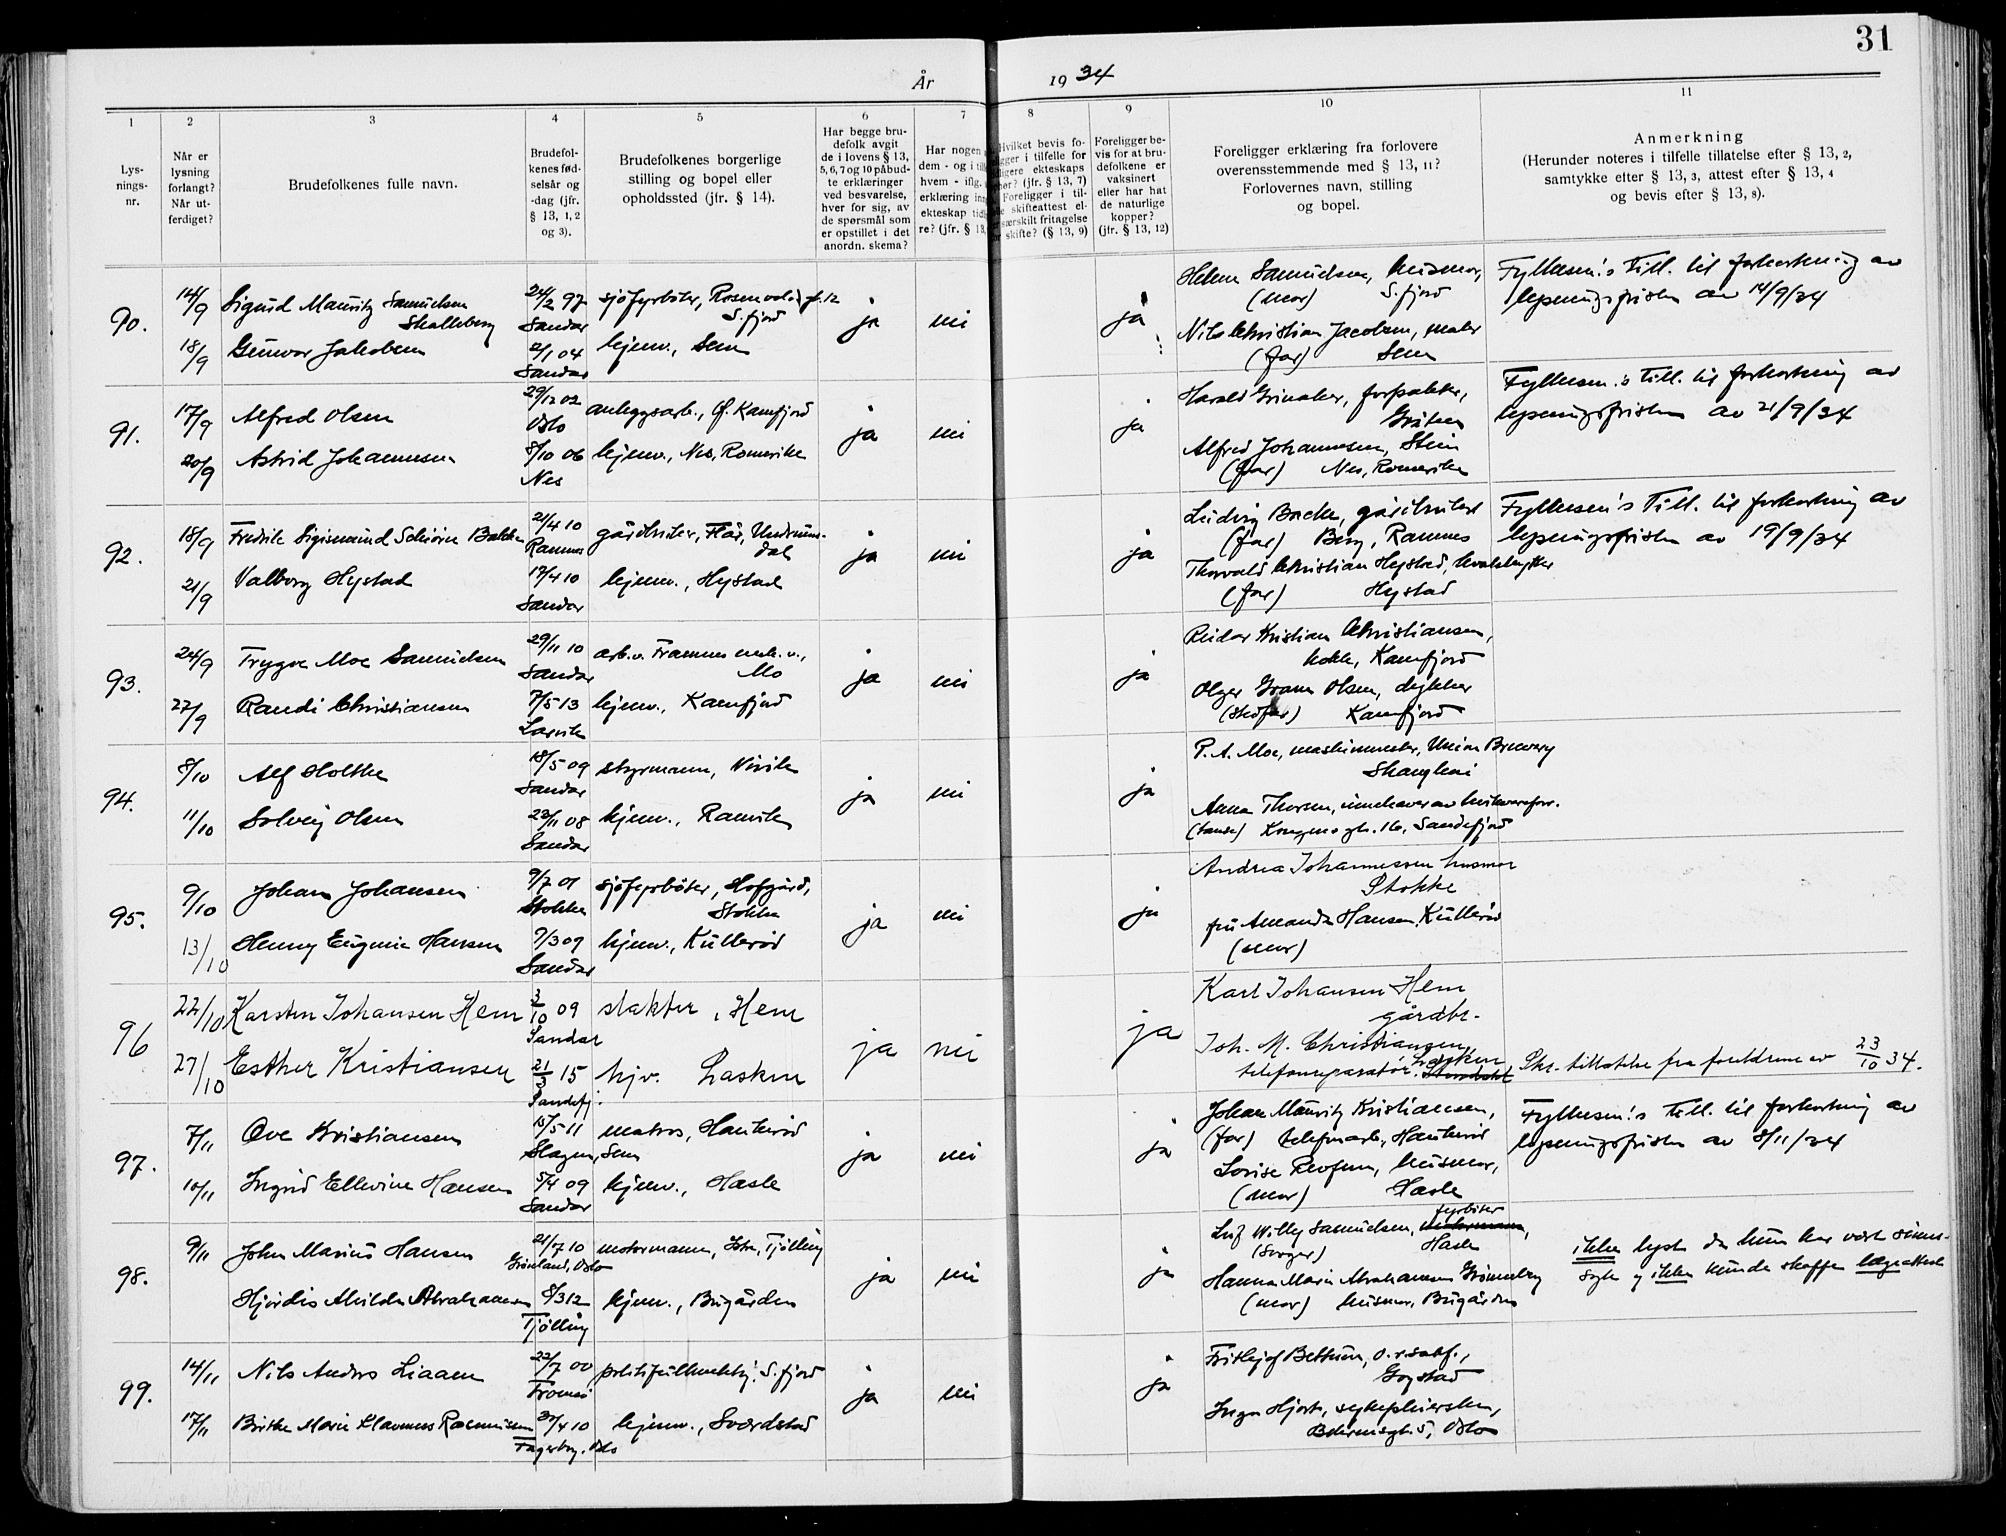 31
År 1934
1
2
3
4
5
6
7
8
9
10
11
Lys-
nings-
nr.
Når er
lysning
forlangt?
Når ut-
ferdiget?
Brudefolkenes fulle navn.
Brudefol-
kenes fød-
selsår og
-dag (jfr.
§ 13, 1, 2
og 3).
Brudefolkenes borgerlige
stilling og bopel eller
opholdssted (jfr. § 14).
Har begge bru-
defolk avgit
de i lovens § 13,
5, 6, 7 og 10 påbud-
te erklæringer
ved besvarelse,
hver for sig, av
de spørsmål som
er opstillet i det
anordn. skema?
Har nogen
dem - og i
hvem - iflg.
erklæring
ekteskap
re? (jfr. § 13,
Hvilket bevis fo-
ligger i tilfelle for
ligere ekteskaps
(jfr. § 13, 7)
Foreligger i til-
skifteattest el-
særskilt fritagelse
skifte? (§ 13, 9)
Foreligger be-
vis for at bru-
defolkene er
vaksinert
eller har hat
de naturlige
kopper?
(jfr. § 13, 12)
Foreligger erklæring fra forlovere
overensstemmende med § 13, 11?
Forlovernes navn, stilling
og bopel.
Anmerkning
(Herunder noteres i tilfelle tillatelse efter § 13, 2,
samtykke efter § 13, 3, attest efter § 13, 4
og bevis efter § 13, 8).
90.
14/9 Sigurd Mauritz Samuelsen
Skalleberg
24/2 97
Sandar
sjøfyrbøter, Rosenvold
S. fjord
18/9 Gunvor Jakobsen
2/1 04
Sandar
hjemv., Sem
ja nei ja
Helene Samuelsen, husmor,
(mor) S. fjord
Nils Christian Jacobsen, maler
(far) Sem
Fylkesm.'s till. til forkortning av
lysningsfristen av 14/9/34
91.
17/9 Alfred Olsen
29/12 02
Oslo
anleggsarb., Kamfjord
20/9 Astrid Johannesen
8/10 06
Nes
hjemv., Nes, Romerike
ja nei ja
Harald Grinaker, forpakter,
Alfred Johannesen, Stein
(far) Nes, Romerike
Fylkesm.'s till. til forkortning av
lysningsfristen av 21/9/34
92.
18/9 Fredrik Sigismund Schiorn Bakke
21/4 10
Ramnes
gårdbruker, Flår, Undrums-
dal
21/9 Valborg Hystad
17/4 10
Sandar
hjemv., Hystad
ja nei ja
Ludvig Bakke, gårdbruker
(far) Berg, Ramnes
Thorvald Christian Hystad, hvalskytter
(far) Hystad
Fylkesm.'s till. til forkortning av
lysningsfristen av 19/9/34
93.
24/9 Trygve Moe Samuelsen
29/11 10
Sandar
arb. v. Framnes mek. v.,
Mo
27/9 Randi Christiansen
7/5 13
Larvik
hjemv., Kamfjord
ja nei ja
Reidar Kristian Christiansen,
kokk, Kamfjord
Olger Gram Olsen, dykker
(stedfar) Kamfjord
94.
8/10 Alf Holtke
18/5 09
Sandar
styrmann, Virik
11/10 Solveig Olsen
23/11 08
Sandar
hjemv., Ranvik
ja nei ja
P. A. Moe, maskinmester, Union Brewery
Shanghai
Anna Thoresen, innehaver av
(tante) Kongens gt. 16, Sandefjord
95.
9/10 Johan Johansen
9/7 01
Stokke
sjøfyrbøter, Hofgård,
Stokke
13/10 Henny Eugenie Hansen
9/3 09
Sandar
hjemv., Kullerød
ja nei ja
Andrea Johannessen husmor
Stokke
fru Amanda Hansen, Kullerød
(mor)
96
22/10 Karsten Johansen Hem
3/10 09
Sandar
slakter, Hem
27/10 Esther Kristiansen
21/3 15
Sandefj.
hjv. Lasken
ja nei ja
Karl Johansen Hem
gårdbr.
Joh. M. Christiansen,
telefonreparatør Lasken
Skr. tillatelse fra foreldrene av 23/10 34.
97.
7/11 Ove Kristiansen
15/5 11
Slagen, Sem
matros, Haukerød
10/11 Ingrid Ellevine Hansen
5/4 09
Sandar
hjemv., Hasle
ja nei ja
Johan Mauritz Kristiansen,
(far) telefonarb., Haukerød
Lovise Revfem, husmor,
(mor) Hasle
Fylkesm.'s till. til forkortning av
lysningsfristen av 8/11/34
98.
9/11 John Marius Hansen
21/7 10
Grønland, Oslo
motormann, Istre, Tjølling
Hjørdis Alvilde Abrahamsen
8/3 12
Tjølling
hjemv., Bugården
ja nei ja
fyrbøter
Leif Willy Samuelsen,
(Svoger) Hasle
Hanna Marie Abrahamsen Grønneberg
(mor) husmor, Bugården
ikke lyst da hun har vært sinns-
syk og ikke kunde skaffe lægeattest
99.
14/11 Nils Anders Liaaen
22/7 00
Tromsø
politifullmektig, S. fjord
17/11 Brithe Marie Klaveness Rasmussen
27/4 10
Fagerborg, Oslo
hjemv., Sverdstad
ja nei ja
Fritjof Bettum, o.r.sakf.,
Gogstad
Inga Hjort, sykepleierske,
Behrensgt. 5, Oslo